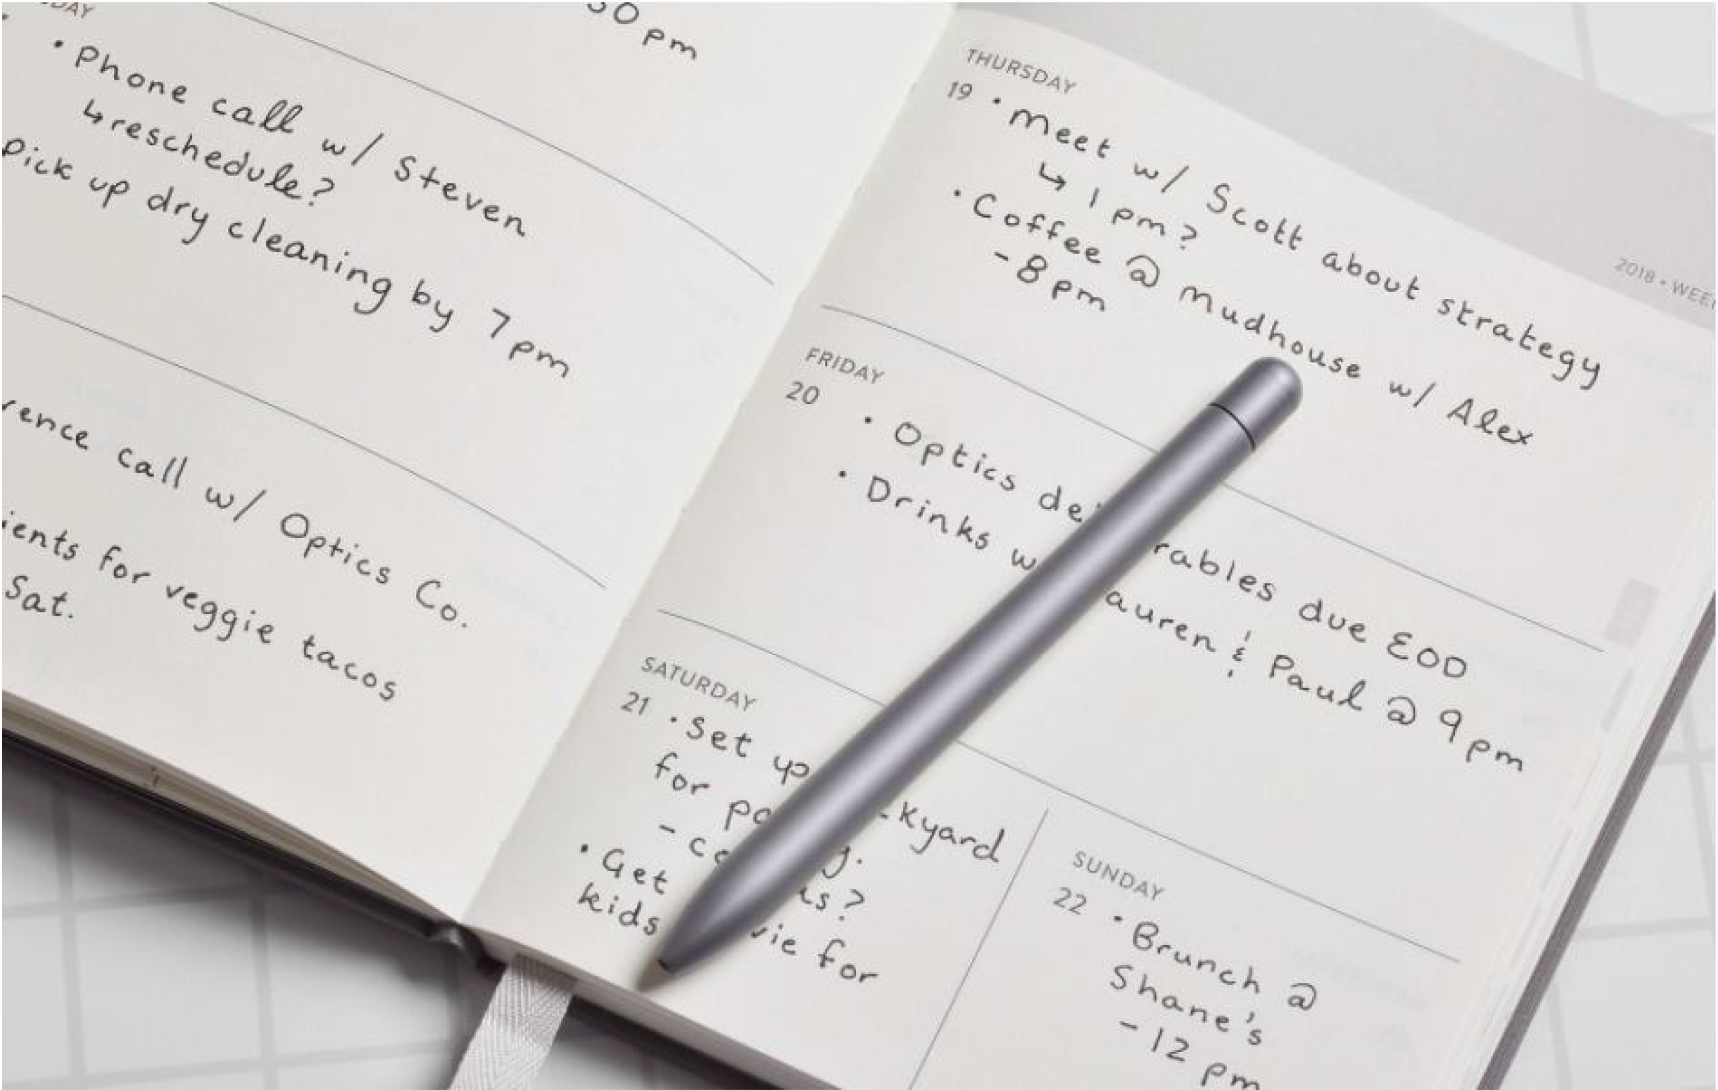 30 pm
DAY
• Phone call w/ Steven
↳ reschedule?
pick up dry cleaning by 7pm
rence call w/ Optics Co.
ients for veggie tacos
Sat.
2018 • WEE
THURSDAY
19 • Meet w/ Scott about strategy
↳ 1pm?
• Coffee @ Mudhouse w/ Alex
- 8pm
FRIDAY
20
• Optics de rables due EOD
• Drinks w auren & Paul @ 9pm
SATURDAY
21 • Set up kyard
for pa y.
- co s?
• Get vie for
kids
SUNDAY
22 • Brunch @
Shane's
- 12 pm